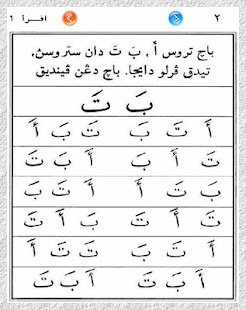 ٢ اقرأ ١
باچ تروس أ , بَ تَ دان ستروسڽ.
تيدق ڤرلو دايجا. باچ دڠن ڤينديق
بَ تَ
أَ تَ بَ بَ تَ أَ
بَ أَ تَ أَ بَ تَ
تَ أَ بَ أَ تَ بَ
أَ بَ تَ بَ أَ تَ
أَ بَ تَ تَ تَ أَ
أَ بَ تَ أَ بَ تَ